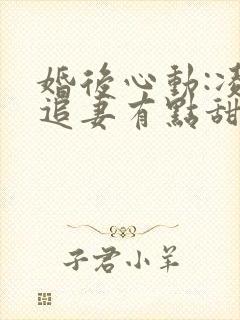 婚後心動:凌
追妻有點甜
子君小羊